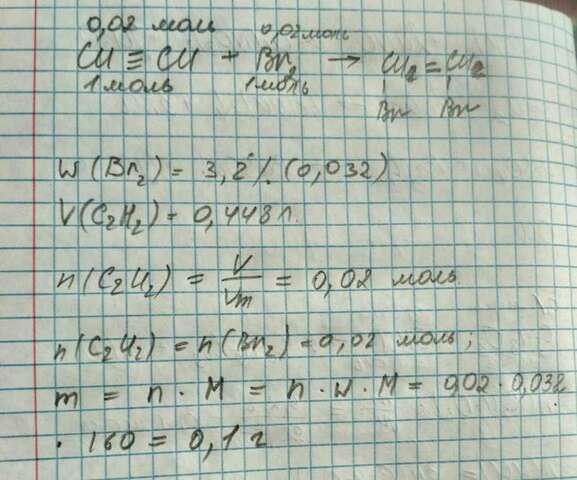 0,02 моль 0,02моль
CH ≡ CH + Br₂ → CH₂ = CH₂
1 моль 1моль
Br Br
W(Br₂) = 3,2% (0,032)
V(C₂H₂) = 0,448 л.
n(C₂H₂) = V/Vm = 0,02 моль
n(C₂H₂) = n(Br₂) = 0,02 моль;
m = n · M = n · W · M = 0,02 · 0,032
· 160 = 0,1 г